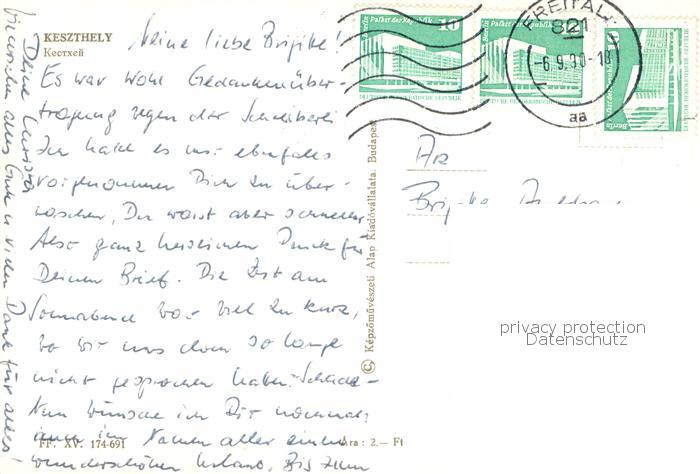 KESZTHELY
Кестхей
Meine liebe Brigitte!
Es war wohl Gedankenüber-
tragung wegen der Schreiberei
Ich hatte es mir ebenfalls
vorgenommen Dich zu über-
raschen, Du warst aber schneller
Also ganz herzlichen Dank für
Deinen Brief. Die Zeit am
Sonnabend war viel zu kurz,
wo wir uns schon so lange
nicht gesprochen haben. Schade-
Nun wünsche ich Dir nochmals
auch im Namen aller einen
wunderschönen Urlaub, Bis zum
alles Gute u. vielen Dank für alles
Deine
FF. XV. 174-691
Ára: 2.— Ft
© Képzőművészeti Alap Kiadóvállalata, Budapest
Berlin Palast der Republik 10
DEUTSCHE DEMOKRATISCHE REPUBLIK
Berlin Palast der Republik
DEUTSCHE DEMOKRATISCHE REPUBLIK
Berlin Palast der Republik
FREITAL
821
-6.9.80-18
aa
Brigitte
privacy protection
Datenschutz